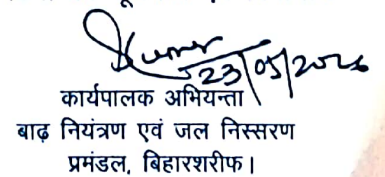 Kumar
23/05/2026
कार्यपालक अभियन्ता
बाढ़ नियंत्रण एवं जल निस्सरण
प्रमंडल, बिहारशरीफ।